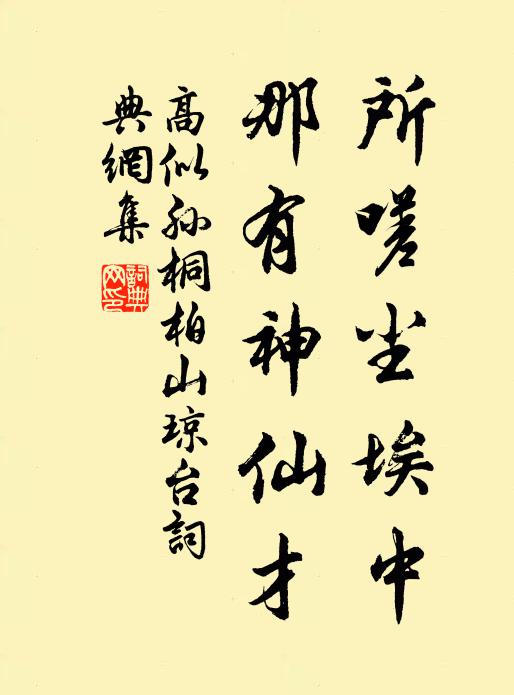 所嗟尘埃中
那有神仙才
高似孙桐柏山琼台詞
典網集
詞典网印